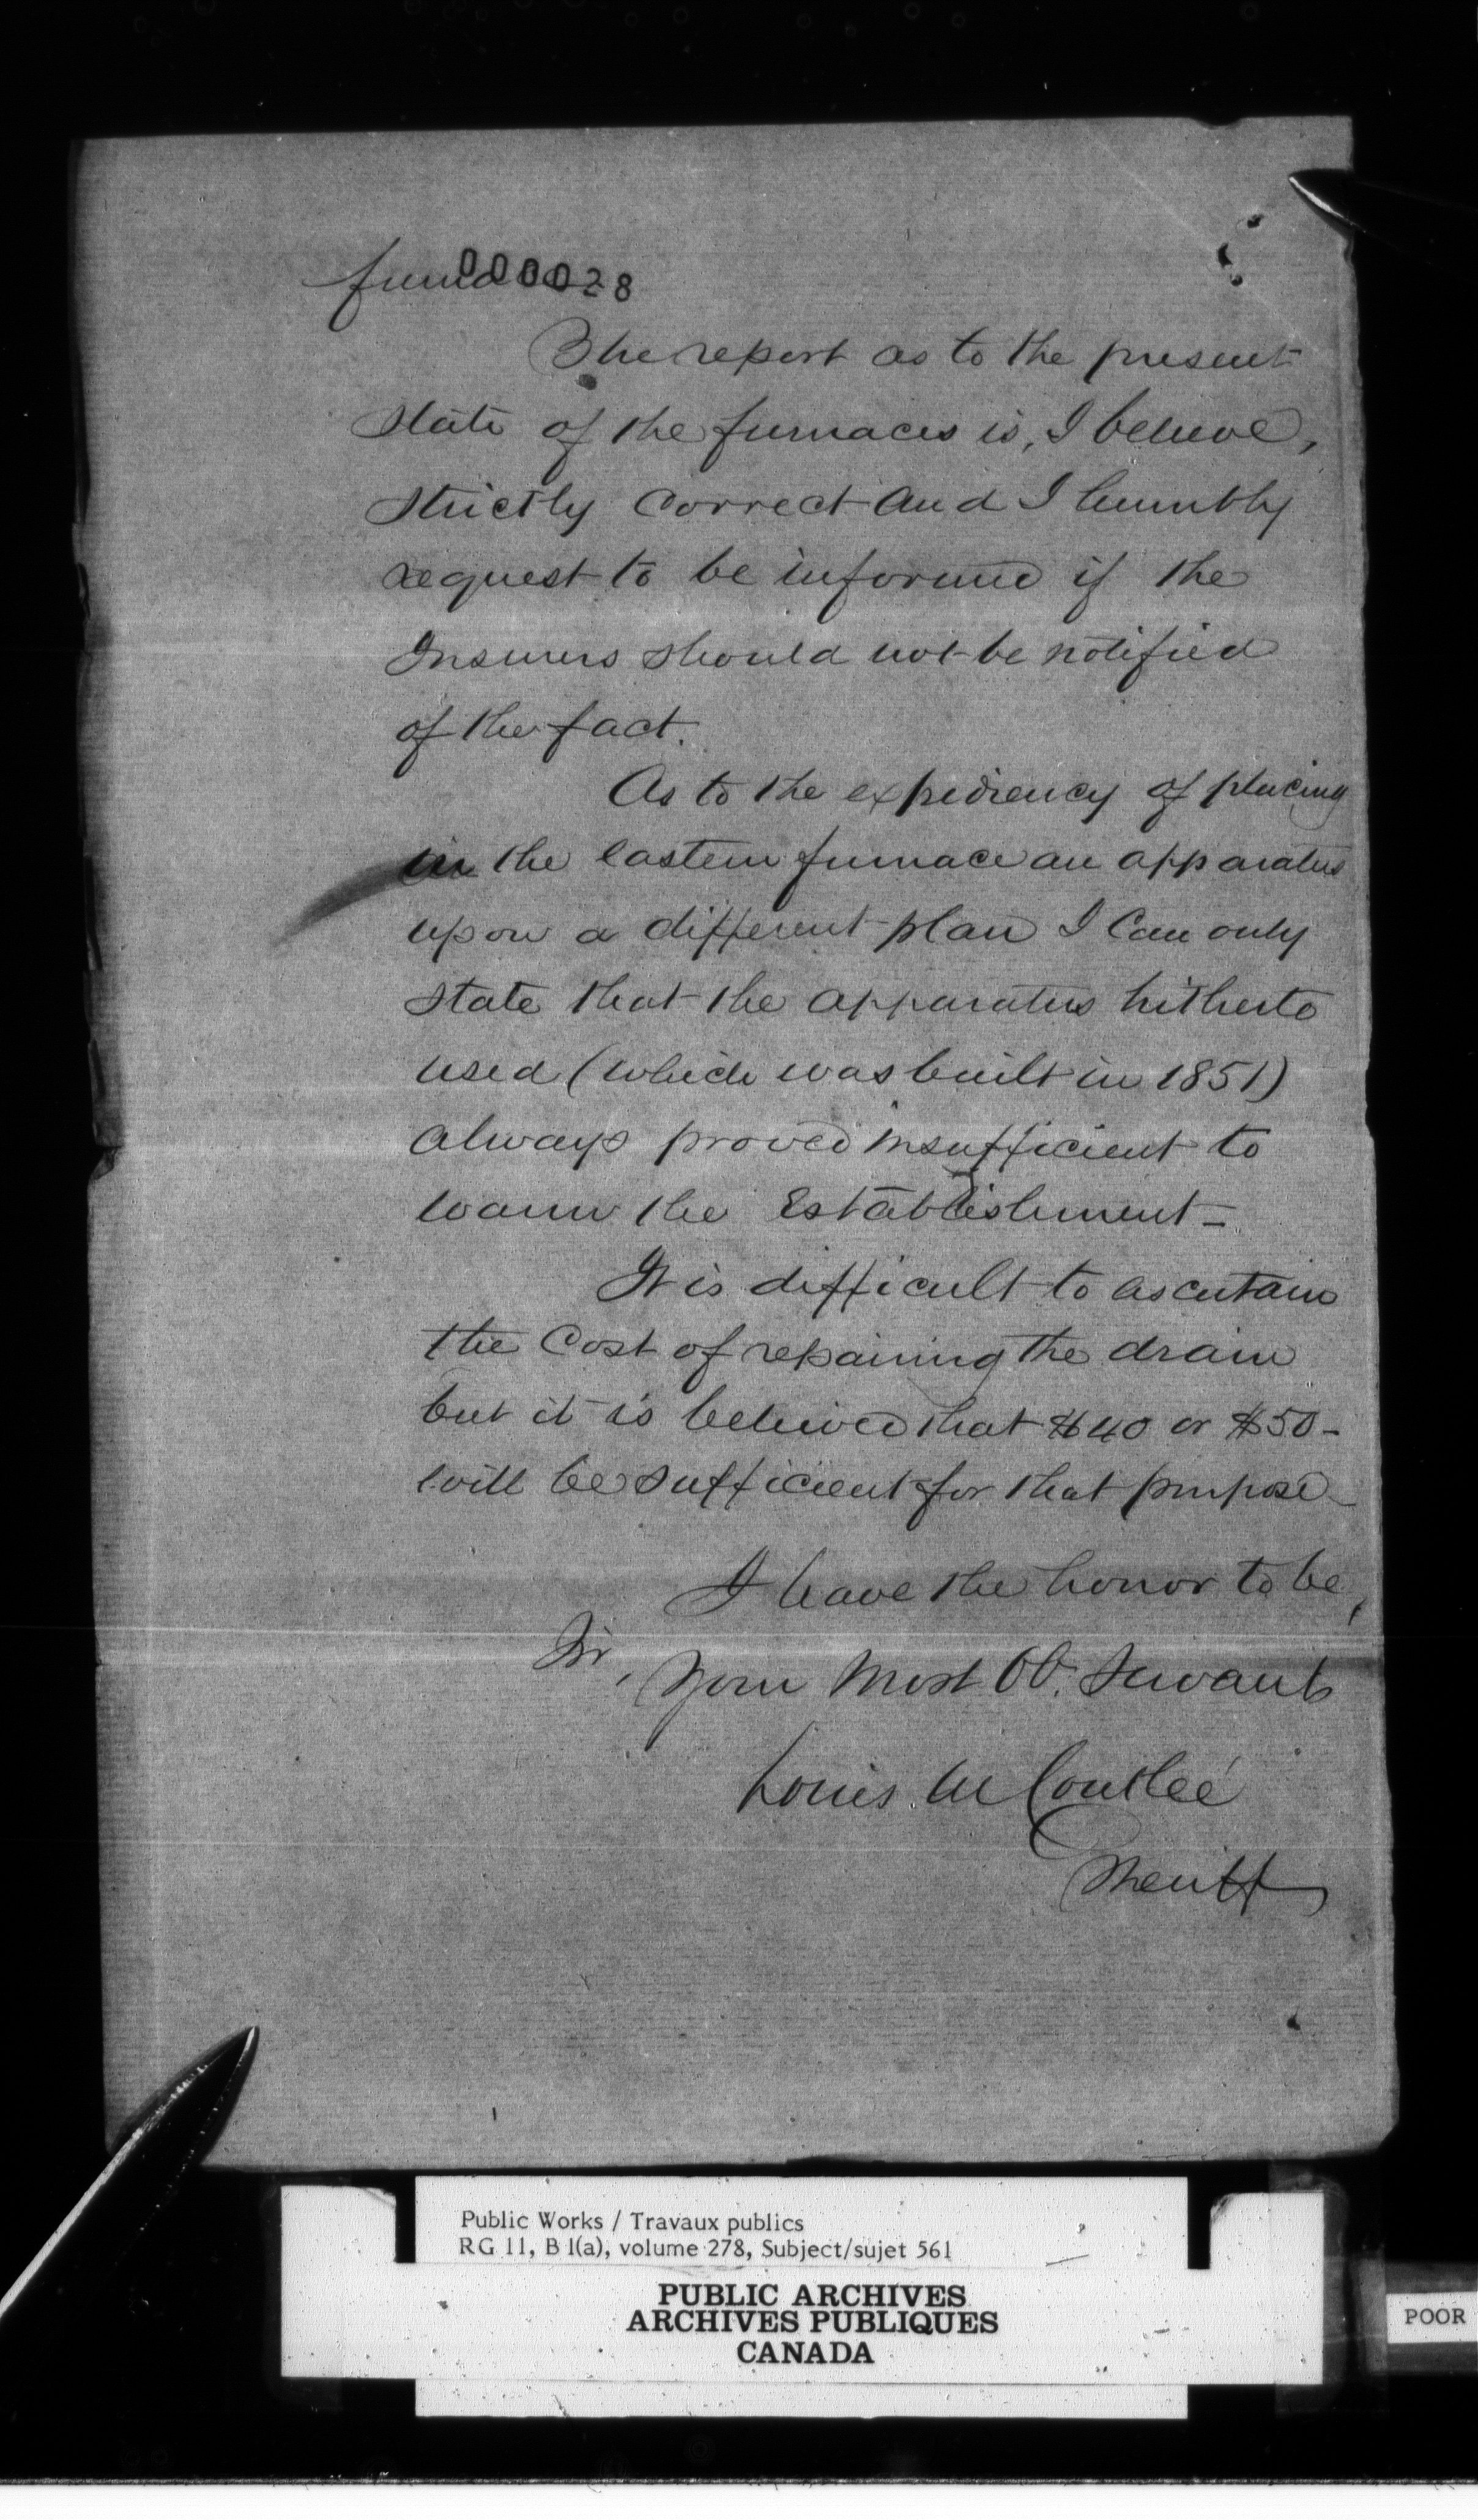 000028
The report as to the present
state of the furnaces is, I believe,
strictly correct and I humbly
request to be informed if the
Insurers should not be notified
of the fact.
As to the expediency of placing
in the eastern furnace an apparatus
upon a different plan I can only
state that the apparatus hitherto
used (which was built in 1851)
always proved insufficient to
warm the Establishment -
It is difficult to ascertain
the cost of repairing the drain
but it is believed that $40 or $50 -
will be sufficient for that purpose -
I have the honor to be,
Sir,
Your Most Ob. Servant
Louis M Coutlée
Sheriff
Public Works / Travaux publics
RG 11, B 1(a), volume 278, Subject/sujet 561
PUBLIC ARCHIVES
ARCHIVES PUBLIQUES
CANADA
POOR